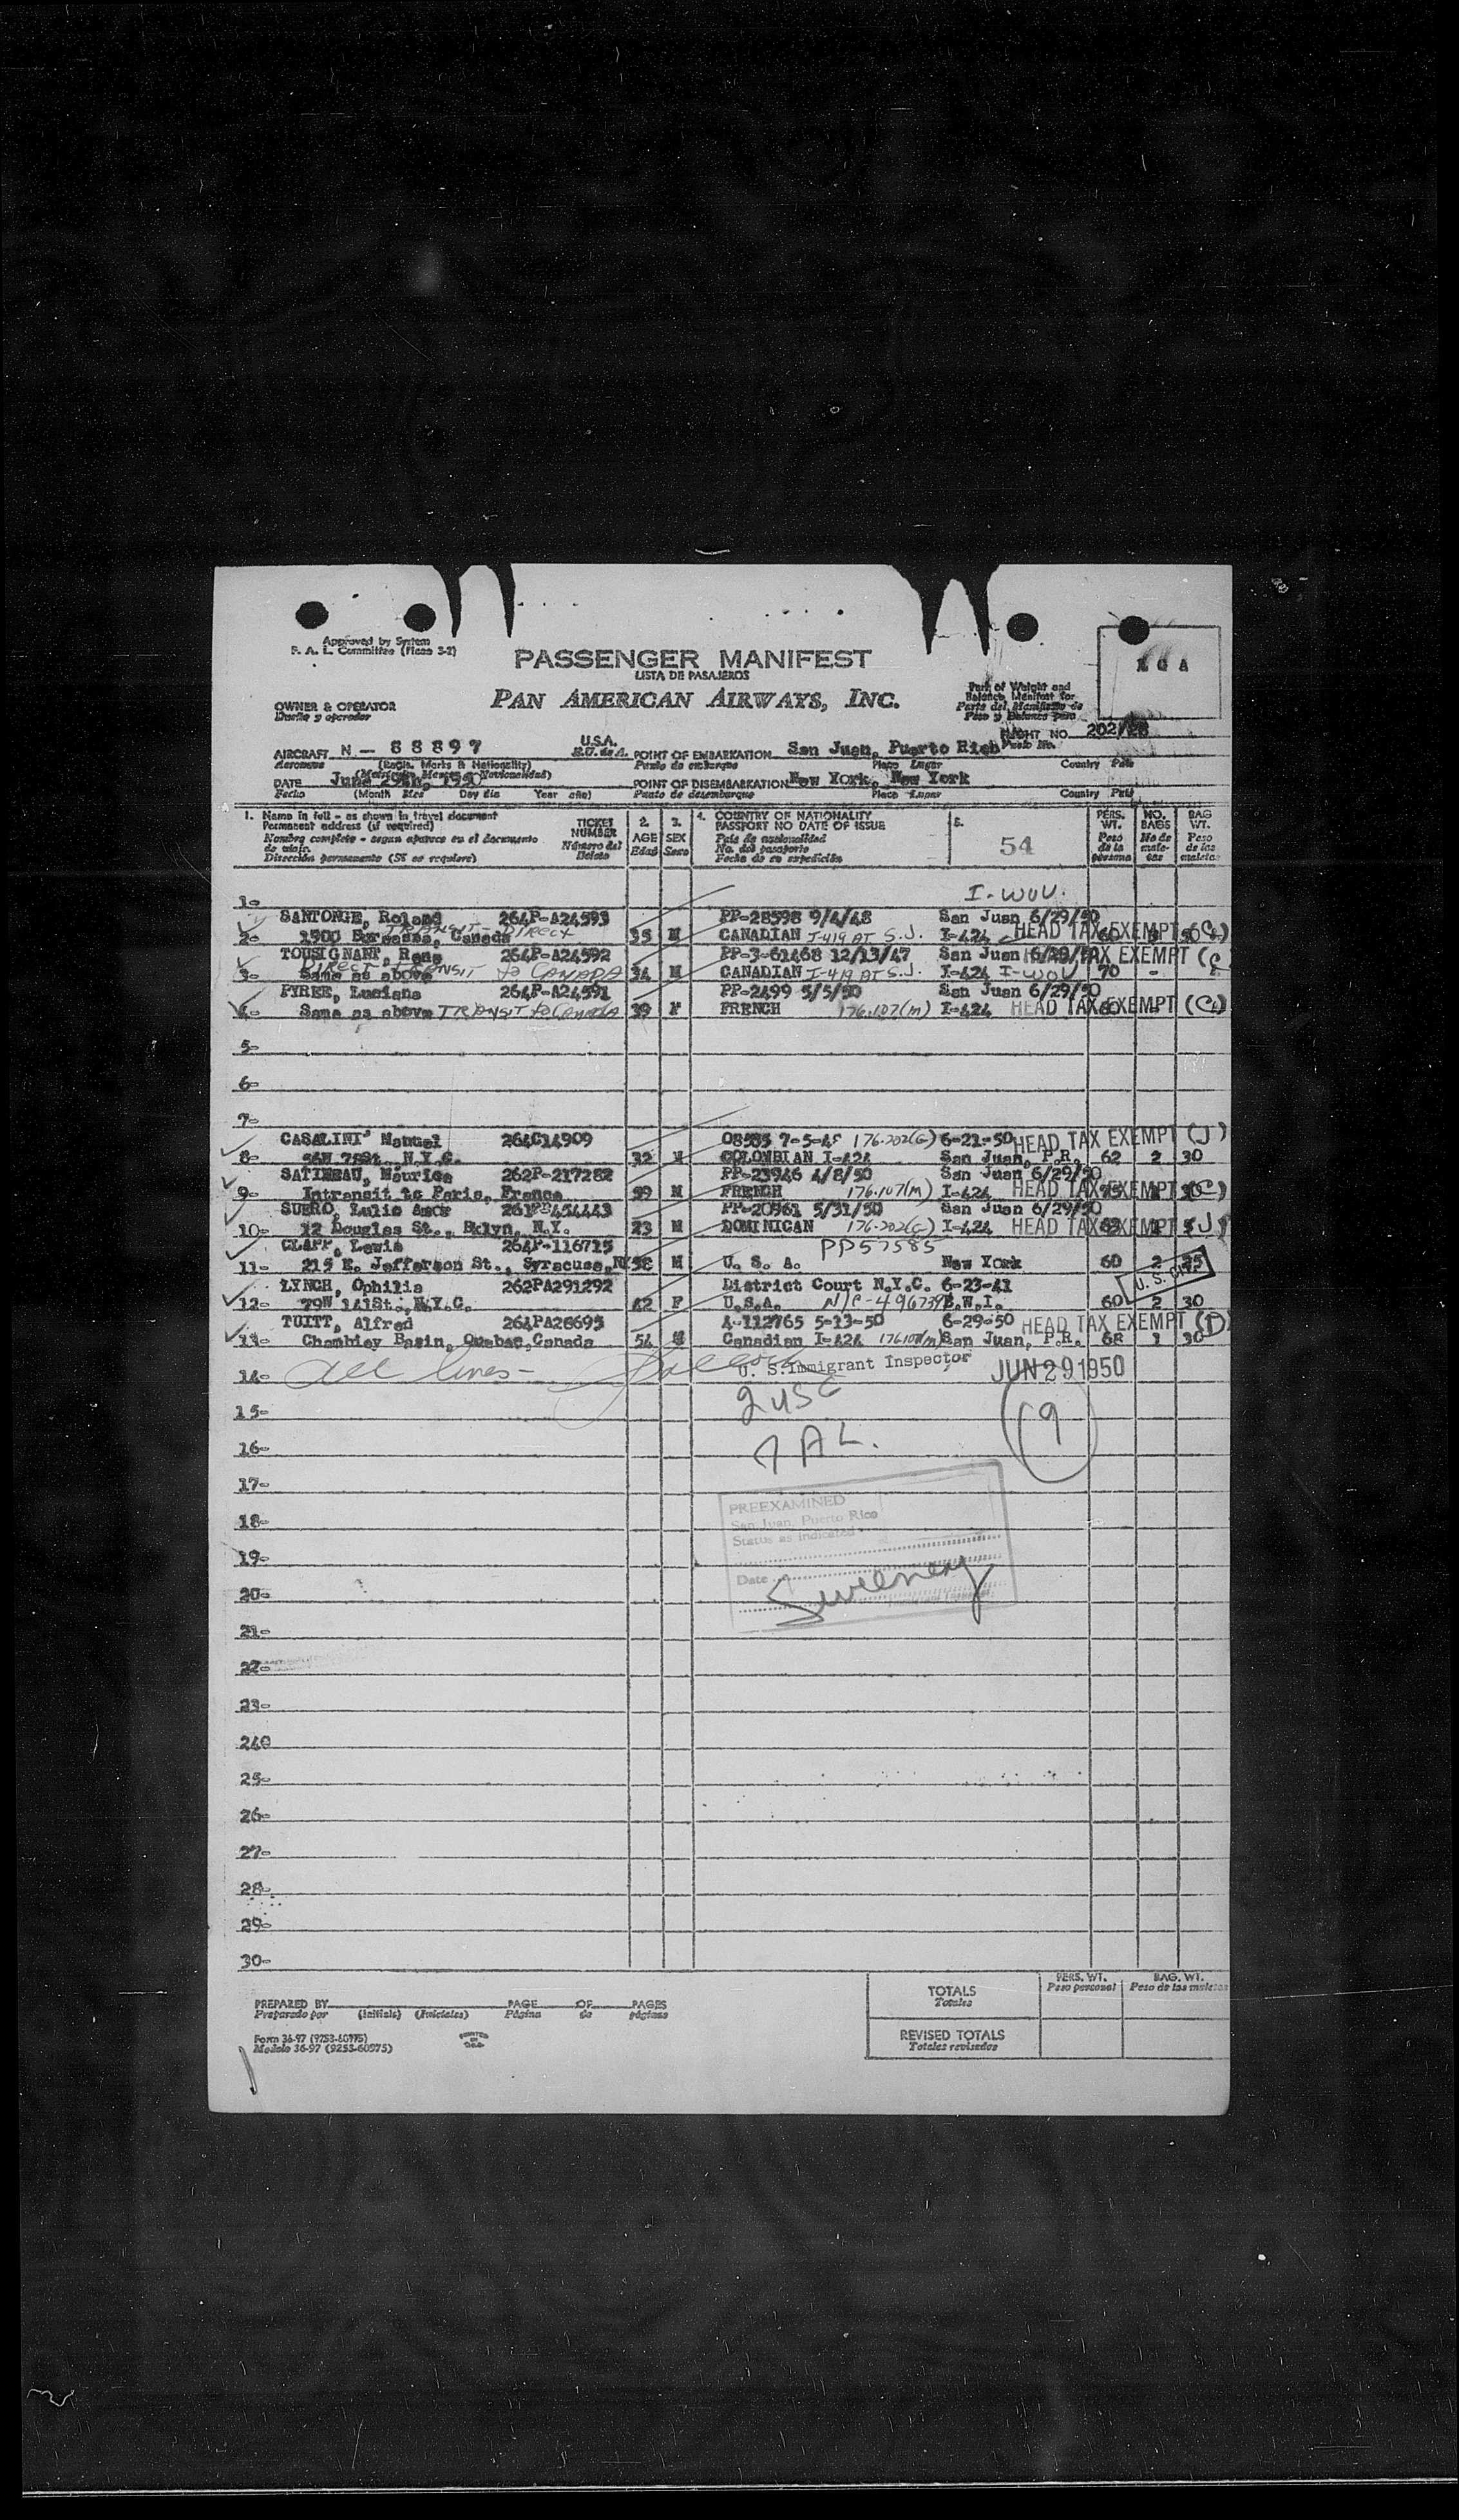 Approved by System
F. A. L. Committee (Ficao 3-2)
PASSENGER MANIFEST
LISTA DE PASAJEROS
PAN AMERICAN AIRWAYS, INC.
OWNER & OPERATOR
Dueño y operador
Part of Weight and
Balance Manifest for
Parte del Manifiesto de
Peso y Balance para
FLIGHT NO. 202/28
Vuelo No.
AIRCRAFT N - 88897 U.S.A. POINT OF EMBARKATION San Juan, Puerto Rico
Aeronave (Regis. Marks & Nationality) E.U. de A. Punto de embarque Place Lugar Country País
DATE June 29th, 1950 POINT OF DISEMBARKATION New York, New York
Fecha (Month Mes Day día Year año) Punto de desembarque Place Lugar Country País
1. Name in full - as shown in travel document
Permanent address (if required)
Nombre completo - segun aparece en el documento
de viaje.
Dirección permanente (Si se requiere)
TICKET NUMBER
Número del Boleto
2. AGE Edad
3. SEX Sexo
4. COUNTRY OF NATIONALITY
PASSPORT NO DATE OF ISSUE
País de nacionalidad
No. del pasaporte
Fecha de su expedición
5. 54
PERS. WT. Peso de la persona
NO. BAGS No de maletas
BAG WT. Peso de las maletas
1- I-WOV.
SANTONGE, Roland 264P-A24593 PP-28598 9/4/48 San Juan 6/29/50
TRANSIT - DIRECT
2- Canada 35 M CANADIAN I-419 AT S.J. I-424 HEAD TAX EXEMPT (C)
TOUSIGNANT, Rene 264P-A24592 PP-3-61468 12/13/47 San Juan 6/29/ HEAD TAX EXEMPT (C
3- Same as above DIRECT TRANSIT to CANADA 34 M CANADIAN I-419 AT S.J. I-424 I-WOV 70 -
PYREE, Luciana 264P-A24591 PP-2499 5/5/50 San Juan 6/29/50
4- Same as above TRANSIT to CANADA 39 F FRENCH 176.107(m) I-424 HEAD TAX EXEMPT (C)
5-
6-
7-
CASALINI Manuel 264C14909 08585 7-5-4 176.202(G) 6-21-50 HEAD TAX EXEMPT (J)
8- N.Y.C. 32 M COLOMBIAN I-424 San Juan, P.R. 62 2 30
SATINEAU, Maurice 262P-217282 PP-23946 4/8/50 San Juan 6/29/50
9- Intransit to Paris, France 59 M FRENCH 176.107(m) I-424 HEAD TAX EXEMPT (C)
SUERO, Lulio Amor 261PB454443 PP-20961 5/31/50 San Juan 6/29/50
10- 12 Douglas St., Bklyn, N.Y. 23 M DOMINICAN 176.202(G) I-424 HEAD TAX EXEMPT (J)
CLAPP, Lewis 264P-116715 PP57585
11- 215 E. Jefferson St., Syracuse, NY 58 M U. S. A. New York 60 2 25
U. S. CIT.
LYNCH, Ophilia 262PA291292 District Court N.Y.C. 6-23-41
12- 79W 141St., N.Y.C. 42 F U.S.A. N/C-496739 B.W.I. 60 2 30
TUITT, Alfred 264PA28695 A-112765 5-13-50 6-29-50 HEAD TAX EXEMPT (D)
13- Chambley Basin, Quebec, Canada 54 M Canadian I-424 176107(m) San Juan, P.R. 68 1 30
14- All lines - U. S. Immigrant Inspector JUN 29 1950
15- 2 USC (9)
16- 7 AL.
17-
PREEXAMINED
San Juan, Puerto Rico
18- Status as indicated
19-
Date
20- Sweeney
21-
22-
23-
240
25-
26-
27-
28-
29-
30-
TOTALS
Totales
PERS. WT.
Peso personal
BAG. WT.
Peso de las maletas
PREPARED BY PAGE OF PAGES
Preparado por (Initials) (Iniciales) Página de páginas
REVISED TOTALS
Totales revisados
Form 36-97 (9253-60975)
Modelo 36-97 (9253-60975)
PRINTED IN U.S.A.